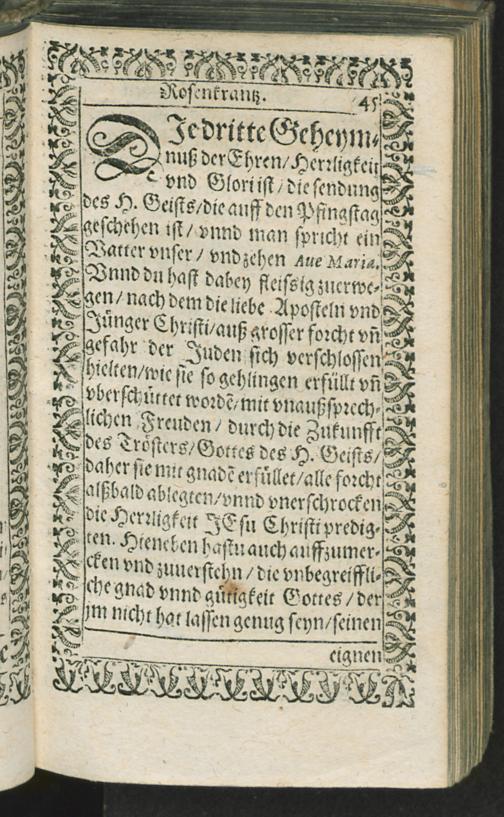 Rosenkrantz.
45
DJe dritte Geheym-
nuß der Ehren/ Herrligkeit
vnd Glori ist / die sendung
des H. Geists/die auff den Pfingstag
geschehen ist / vnnd man spricht ein
Vatter vnser / vnd zehen Aue Maria.
Vnnd du hast dabey fleissig zuerwe-
gen / nach dem die liebe Aposteln vnd
Jünger Christi/auß grosser forcht vñ
gefahr der Juden sich verschlossen
hielten/wie sie so gehlingen erfüllt vñ
vberschüttet wordẽ/mit vnaußsprech-
lichen Freuden / durch die Zukunfft
des Trösters/Gottes des H. Geists/
daher sie mit gnadẽ erfüllet/alle forcht
alßbald ablegten/vnnd vnerschrocken
die Herrligkeit JEsu Christi predig-
ten. Hieneben hastu auch auffzumer-
cken vnd zuuerstehn / die vnbegreiffli-
che gnad vnnd gütigkeit Gottes / der
jm nicht hat lassen genug seyn/seinen
eignen